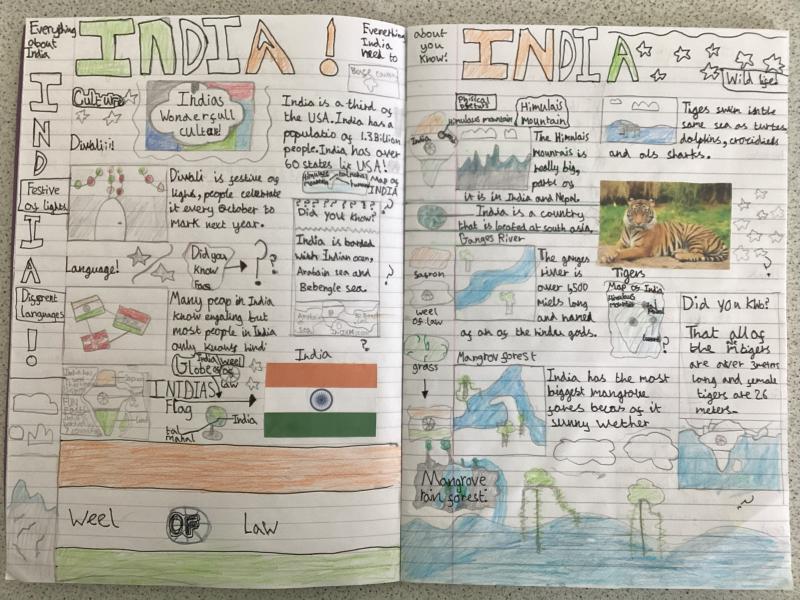 Everything
about
India
INDIA!
Everething
India
need to
INDIA!!
Culture
Indias
Wonserfull
cultur!
India is a third of
the USA. India has a
populatio of 1.3 Billion
people. India has over
60 states lik USA!
Diwali!!
Festive
of lights
Diwali is festive of
lights, people celebrate
it every October to
mark next year.
Map of
INDIA
Did you know?
India is borded
with Indian ocen,
Arabain sea and
Bebengle sea.
Language!
Did you
Know
Face
Disserent
languages
Many peop in India
know engaling but
most people in India
only knows hindi
Globe of
India
Weel
of
law
INDIAS
Flag
India
taj
mahal
India
Weel OF Law
about
you
Know!
INDIA
Wild lifes
Phisical
Himulais mountain
Himulais
Mountain
India
The Himulais
mountais is
really big,
parts of
it is in India and Nepal.
India is a country
that is located at south asia,
Ganges River
Tiges swim in the
same sea as turtes
dolphins, crocidiels
and als sharks.
safron
weel
of law
grass
The ganges
river is
over 1,500
miels long
and named
of on of the hindu gods.
Tigers
Map of India
Did you Kno?
That all of
the tigers
are over 3 metrs
long and female
tigers are 2.6
meters.
Mangrov forest
India has the most
biggest mangrove
fores becas of it
sunny wether
Mangrove
rain forest.